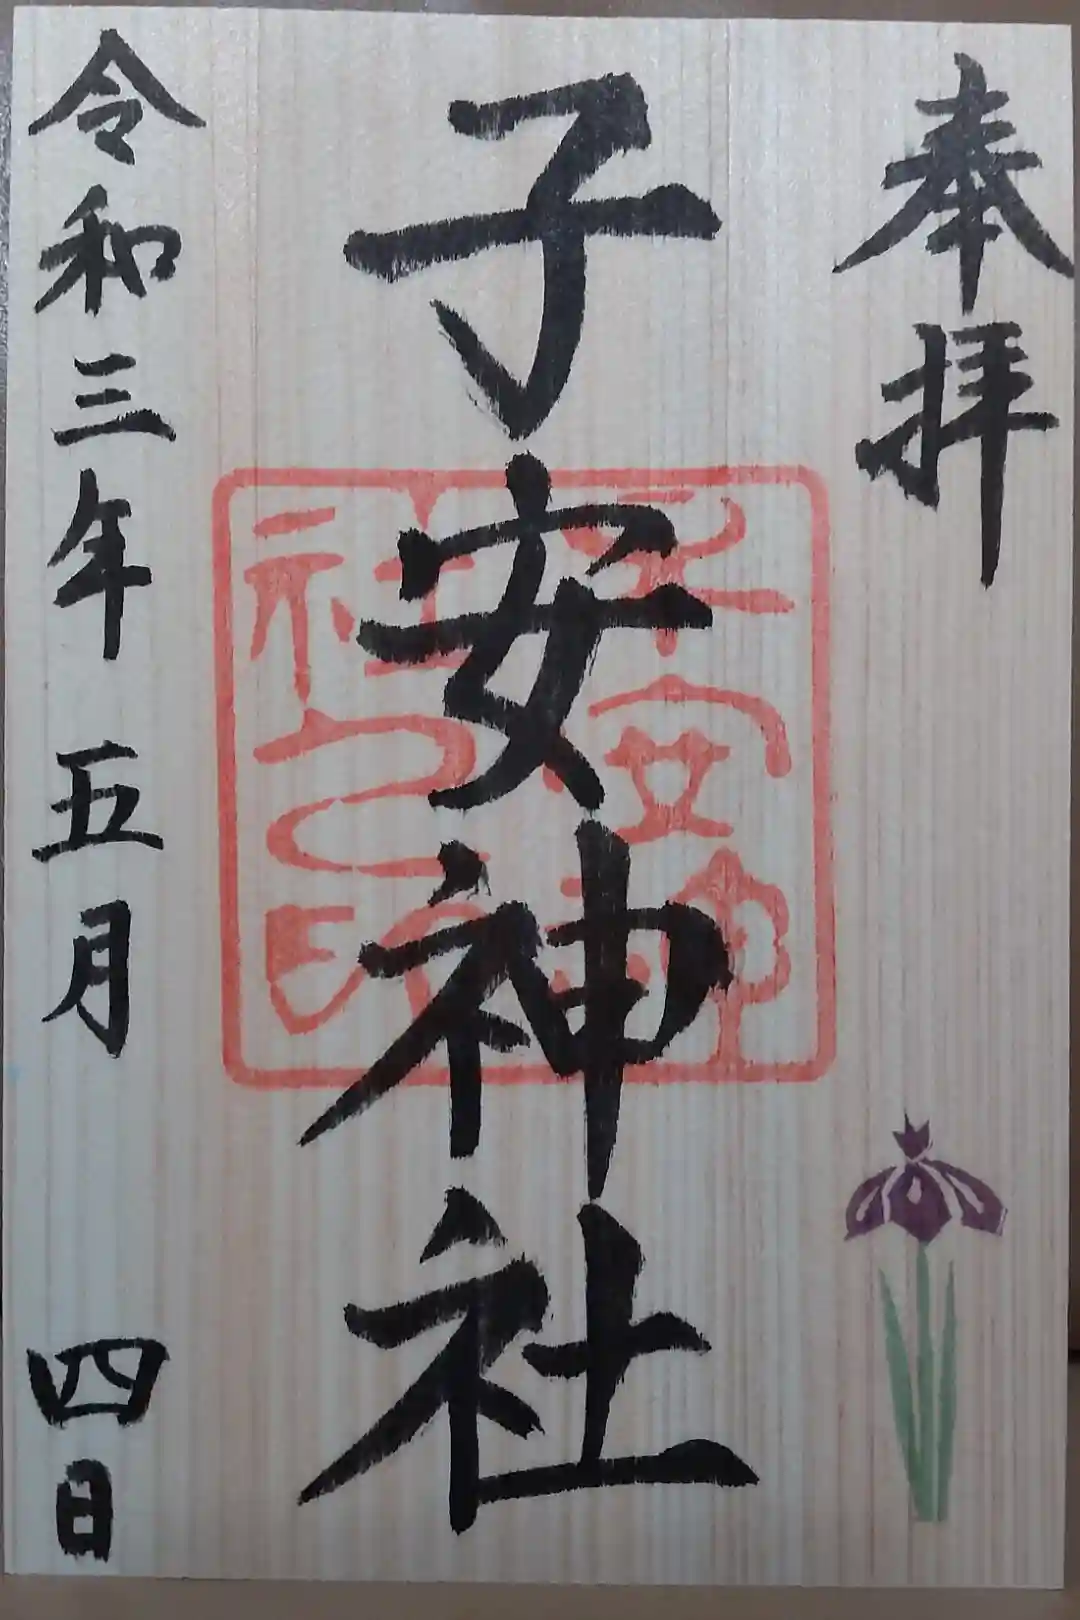 奉拝
子安神社
子安神
社之印
令和三年五月四日